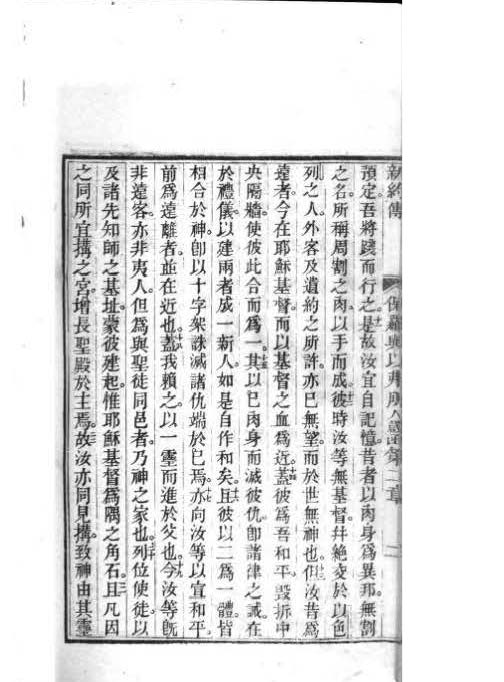 新約傳 保羅與以弗所人書第二章 二
預定吾將踐而行之。是故汝宜自記憶。昔者以肉身爲異邦。無割
之名。所稱周割之肉以手而成。彼時汝等無基督。幷絕交於以色
列之人。外客及遺約之所許。亦已無望。而於世無神也。但汝昔爲
遠者。今在耶穌基督。而以基督之血爲近。蓋彼爲吾和平。毀拆中
央隔牆。使彼此合而爲一。其以己肉身而滅彼仇。卽諸律之誡。在
於禮儀。以建兩者成一新人。如是自作和矣。且彼以二爲一體。皆
相合於神。卽以十字架誅滅諸仇端於己焉。亦向汝等以宣和平。
前爲遠離者。並在近也。蓋我賴之以一靈而進於父也。今汝等旣
非遠客。亦非夷人。但爲與聖徒同邑者。乃神之家也。列位使徒。以
及諸先知師之基址。蒙彼建起。惟耶穌基督爲隅之角石。且凡因
之同所宜搆之宮。增長聖殿於主焉。故汝亦同見搆。致神由其靈